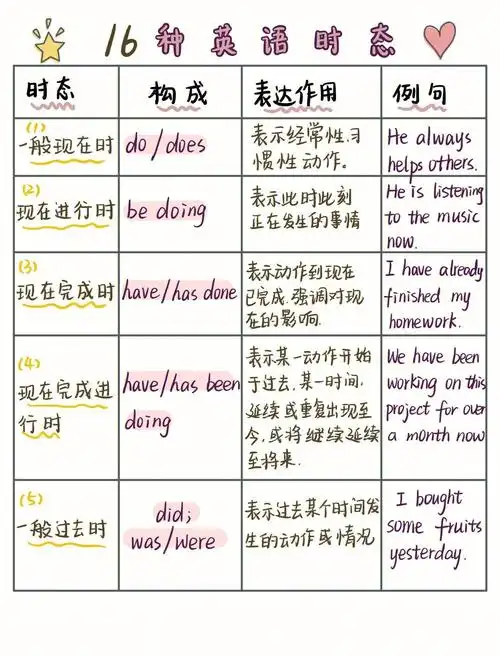 16种英语时态
时态
构成
表达作用
例句
(1)
一般现在时
do/does
表示经常性、习
惯性动作。
He always
helps others.
(2)
现在进行时
be doing
表示此时此刻
正在发生的事情
He is listening
to the music
now.
(3)
现在完成时
have/has done
表示动作到现在
已完成.强调对现
在的影响.
I have already
finished my
homework.
(4)
现在完成进
行时
have/has been
doing
表示某一动作开始
于过去,某一时间.
延续或重复出现至
今,或将继续延续
至将来.
We have been
working on this
project for over
a month now
(5)
一般过去时
did;
was/were
表示过去某个时间发
生的动作或情况
I bought
some fruits
yesterday.